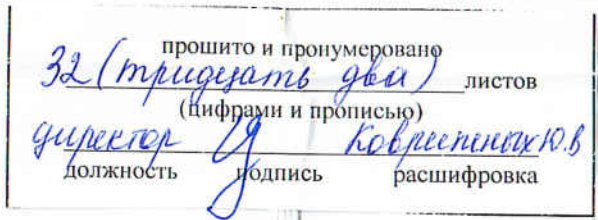 прошито и пронумеровано
32 (тридцать два) листов
(цифрами и прописью)
директор Ковригиных Ю.В
должность подпись расшифровка